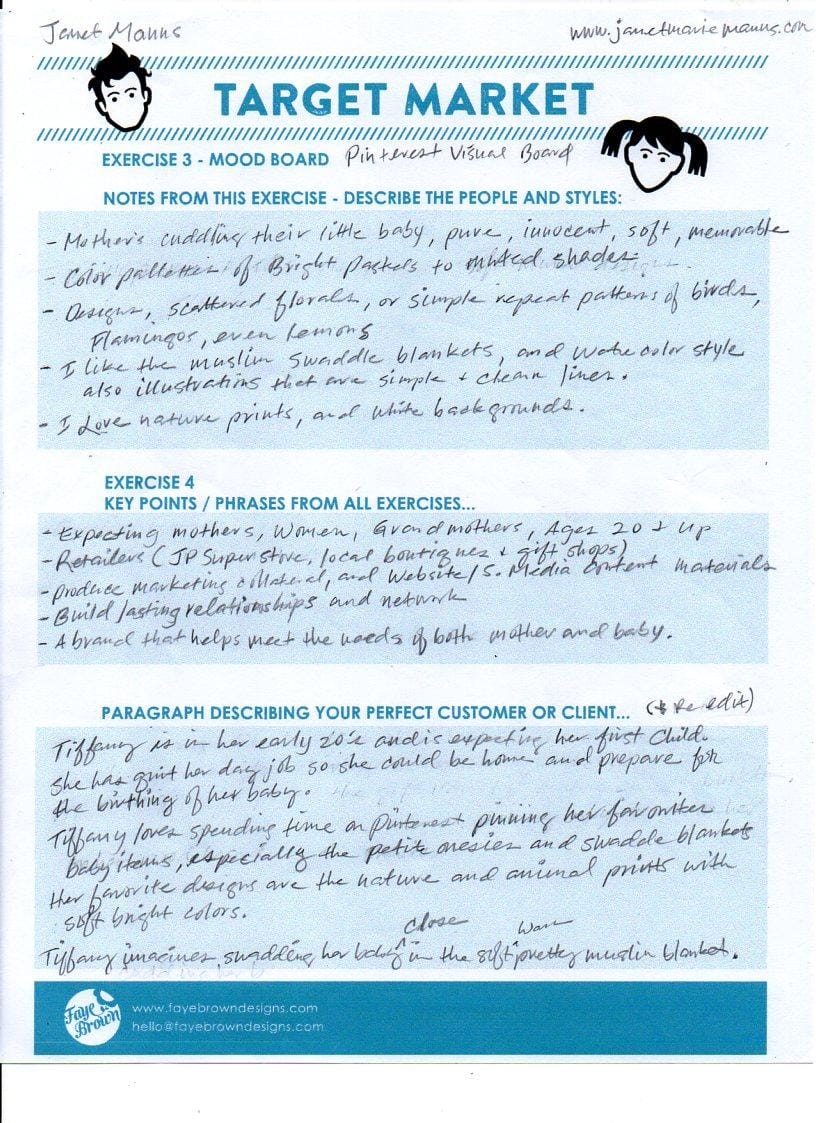 Janet Manns
www.janetmariemanns.com
TARGET MARKET
EXERCISE 3 - MOOD BOARD Pinterest Visual Board
NOTES FROM THIS EXERCISE - DESCRIBE THE PEOPLE AND STYLES:
- Mother's cuddling their little baby, pure, innocent, soft, memorable
- Color pallettes of Bright Pastels to muted shades.
- Designs, scattered florals, or simple repeat patterns of birds,
Flamingos, even lemons
- I like the muslim swaddle blankets, and watercolor style
also illustrations that are simple + clean lines.
- I Love nature prints, and white backgrounds.
EXERCISE 4
KEY POINTS / PHRASES FROM ALL EXERCISES...
- Expecting mothers, Women, Grandmothers, Ages 20 + up
- Retailers (JP Superstore, local boutiques + gift shops)
- Produce marketing collateral, and Website/S. Media content materials
- Build lasting relationships and network
- A brand that helps meet the needs of both mother and baby.
PARAGRAPH DESCRIBING YOUR PERFECT CUSTOMER OR CLIENT... Re edit)
Tiffany is in her early 20's and is expecting her first Child.
She has quit her day job so she could be home and prepare for
the birthing of her baby.
Tiffany loves spending time on Pinterest pinning her favorites
baby items, especially the petite onesies and swaddle blankets
Her favorite designs are the nature and animal prints with
soft bright colors.
close warm
Tiffany imagines swadding her baby in the soft pretty muslin blanket.
Faye Brown
www.fayebrowndesigns.com
hello@fayebrowndesigns.com